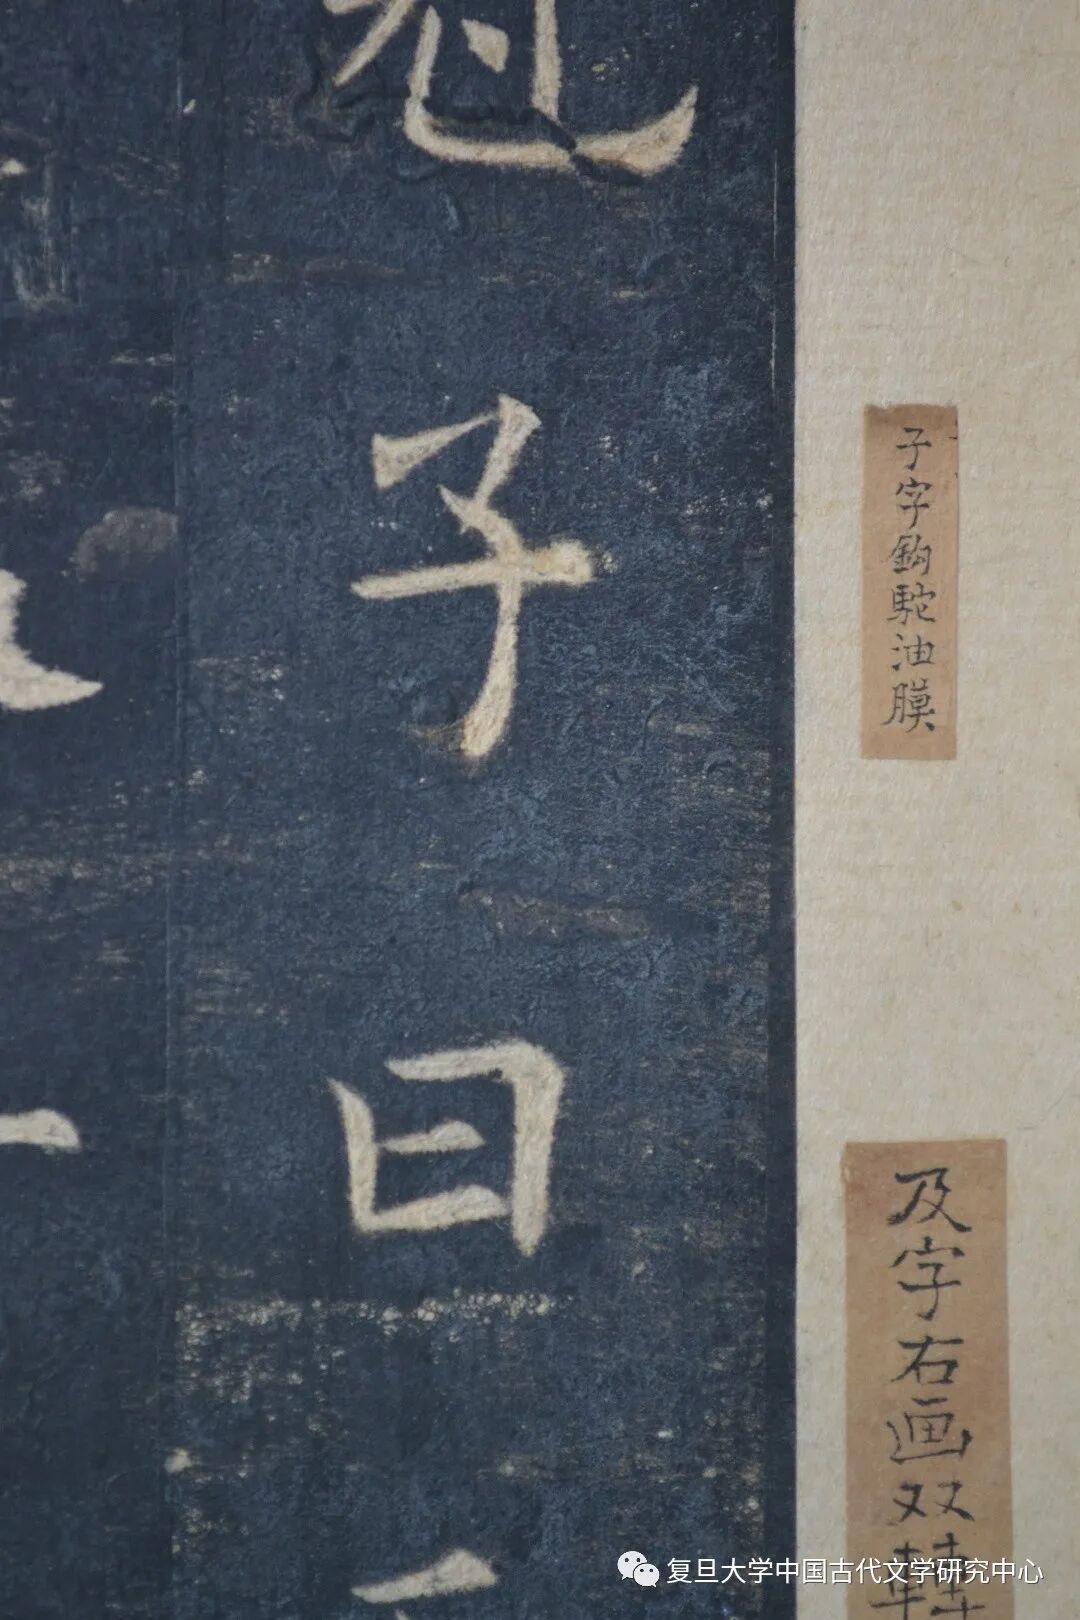 子字鈎駝油膜
及字右画双
子曰
复旦大学中国古代文学研究中心